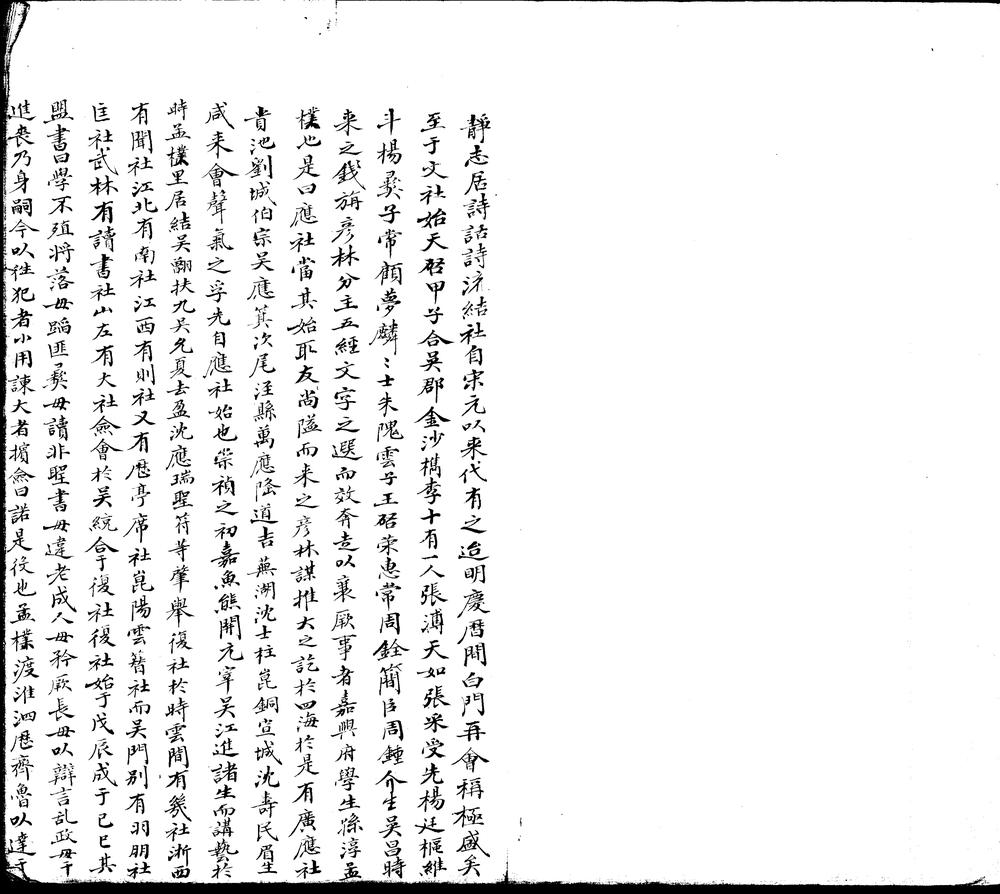 靜志居詩話詩流結社自宋元以来代有之迨明慶曆間白門再會稱極盛矣
至于文社始天啓甲子合吳郡金沙檇李十有一人張溥天如張采受先楊廷樞維
斗楊彝子常顧夢麟〻士朱隗雲子王啓荣惠常周銓簡臣周鍾介生吳昌時
来之錢旃彥林分主五經文字之選而效奔走以襄厥事者嘉興府學生孫淳孟
樸也是曰應社當其始取友尚隘而来之彥林謀推大之訖於四海於是有廣應社
貴池劉城伯宗吳應箕次尾涇縣萬應隆道吉蕪湖沈士柱崑銅宣城沈壽民眉生
咸来會聲氣之孚先自應社始也崇禎之初嘉魚熊開元宰吳江進諸生而講藝於
時孟樸里居結吳翻扶九吳允夏去盈沈應瑞聖符等肇舉復社於時雲間有幾社浙西
有聞社江北有南社江西有則社又有歷亭席社崑陽雲簪社而吳門別有羽朋社
匡社武林有讀書社山左有大社僉會於吳統合于復社復社始于戊辰成于己巳其
盟書曰學不殖將落毋蹈匪彝毋讀非聖書毋違老成人毋矜厥長毋以辯言乱政毋干
進喪乃身嗣今以往犯者小用諫大者擯僉曰諾是役也孟樸渡淮泗歷齊魯以達于